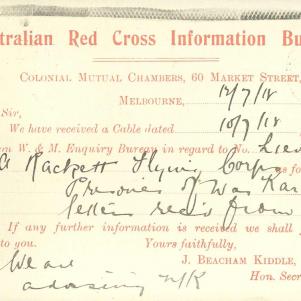 tralian Red Cross Information Bu
COLONIAL MUTUAL CHAMBERS, 60 MARKET STREET,
MELBOURNE, 12/7/18
Sir,
We have received a Cable dated 10/7/18
on W. & M. Enquiry Bureau in regard to No. Lieu
A Rackett Flying Corps as fo
Prisoner of War Kar
letter rec'd from
If any further information is received we shall
to you. Yours faithfully,
We are J. BEACHAM KIDDLE,
advising N/K Hon. Secr